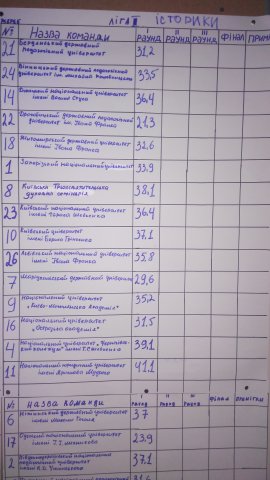 ЛІГА ІСТОРИКИ
№ Назва команди РАУНД II РАУНД III РАУНД ФІНАЛ ПРИМІ
21 Бердянський державний
педагогічний університет 31,2
24 Вінницький державний педагогічний
університет ім. Михайла Коцюбинського 33,5
14 Донецький національний університет
імені Василя Стуса 36,4
22 державний педагогічний
університет ім. Івана Франка
18 Житомирський державний університет
імені Івана Франка 32,6
1 Запорізький національний університет 33,9
8 Київська Трьохсвятительська
духовна семінарія 38,1
23 Київський національний університет
імені Тараса Шевченка 36,4
10 Київський університет
імені Бориса Грінченка 37,1
26 Львівський національний університет
імені Івана Франка 35,8
7 державний університет 29,6
9 Національний університет
"Києво-Могилянська Академія" 35,2
16 Національний університет
"Острозька академія" 31,5
4 Національний університет "Чернігівський
колегіум" імені Т.Г. Шевченка 39,1
11 Національний юридичний університет
імені Ярослава Мудрого 41,1
№ Назва команди РАУНД РАУНД РАУНД ФІНАЛ
6 Ніжинський державний університет
імені Миколи Гоголя 37
17 Одеський національний університет
імені І. І. Мечникова 23,9
2 Південноукраїнський національний
педагогічний університет
ім. К. Д. Ушинського 37,1